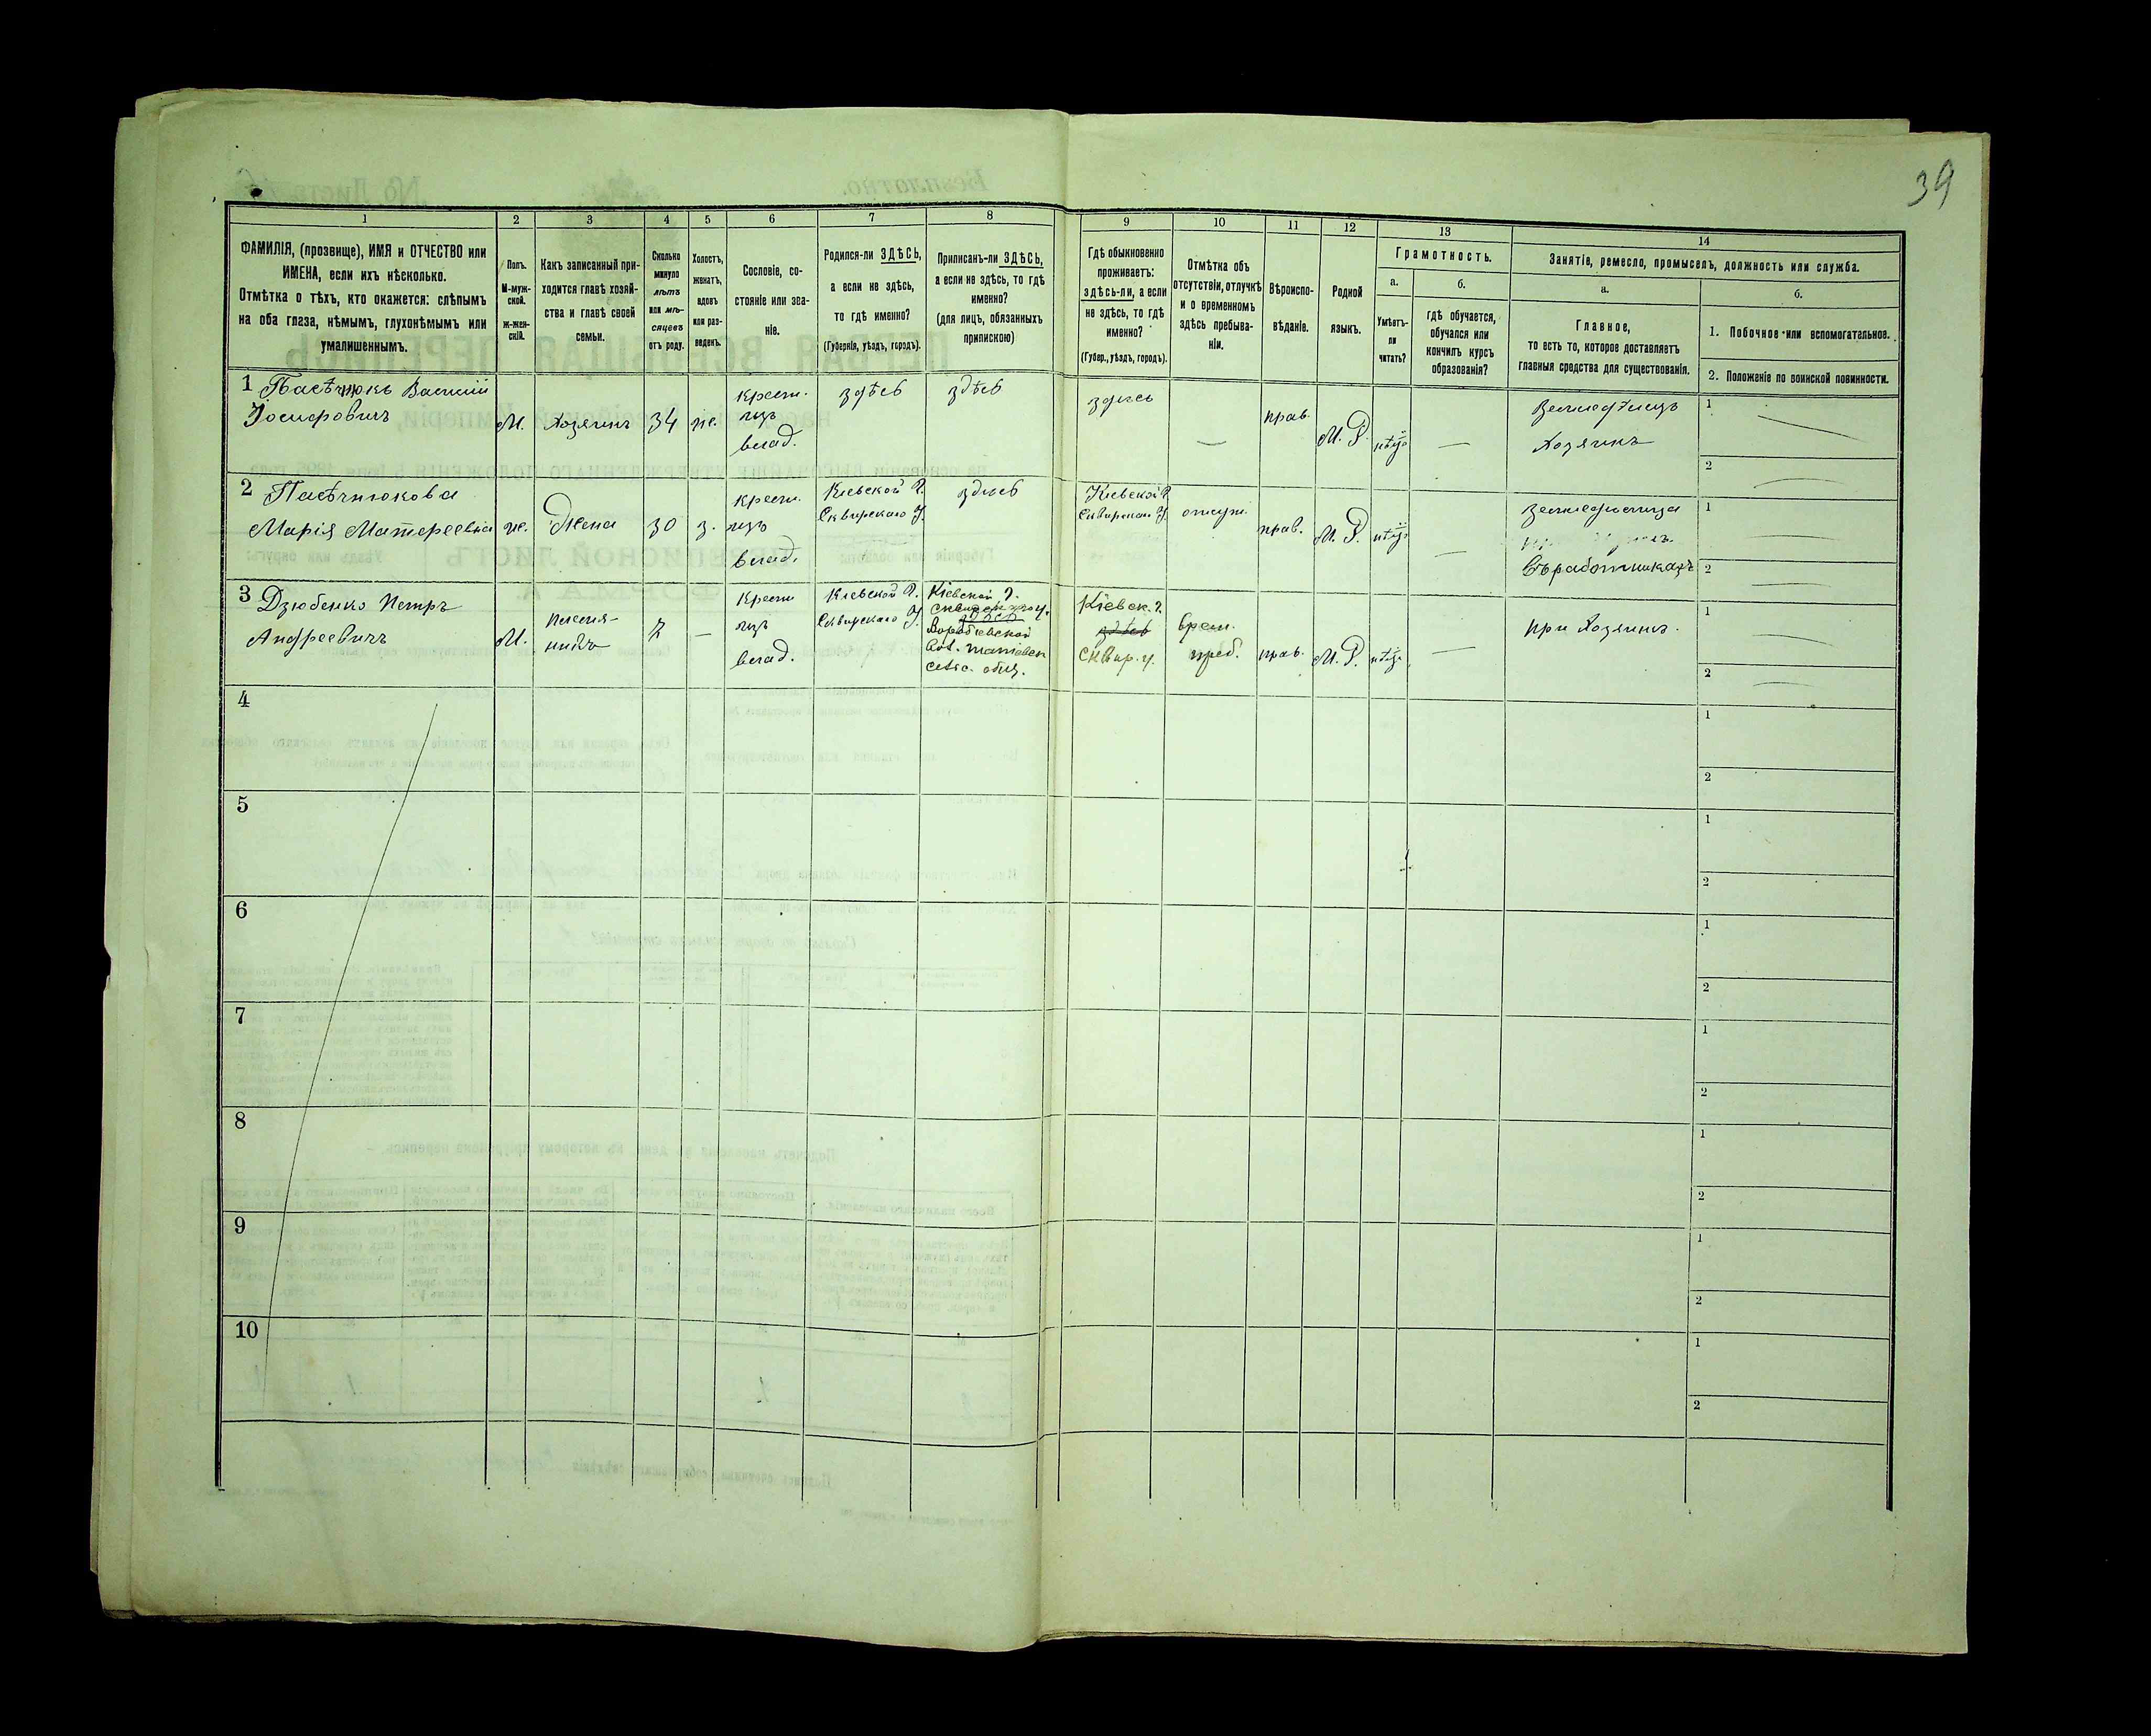 39
1 2 3 4 5 6 7 8 9 10 11 12 13 14
ФАМИЛІЯ, (прозвище), ИМЯ и ОТЧЕСТВО или
ИМЕНА, если ихъ нѣсколько.
Отмѣтка о тѣхъ, кто окажется: слѣпымъ
на оба глаза, нѣмымъ, глухонѣмымъ или
умалишеннымъ.
Полъ.
М-муж-
ской.
ж-жен-
скій.
Какъ записанный при-
ходится главѣ хозяй-
ства и главѣ своей
семьи.
Сколько
минуло
лѣтъ
или мѣ-
сяцевъ
отъ роду.
Холостъ,
женатъ,
вдовъ
или раз-
веденъ.
Сословіе, со-
стояніе или зва-
ніе.
Родился-ли ЗДѢСЬ,
а если не здѣсь,
то гдѣ именно?
(Губернія, уѣздъ, городъ).
Приписанъ-ли ЗДѢСЬ,
а если не здѣсь, то гдѣ
именно?
(для лицъ, обязанныхъ
припискою)
Гдѣ обыкновенно
проживаетъ:
здѣсь-ли, а если
не здѣсь, то гдѣ
именно?
(Губер., уѣздъ, городъ).
Отмѣтка объ
отсутствіи, отлучкѣ
и о временномъ
здѣсь пребыва-
ніи.
Вѣроиспо-
вѣданіе.
Родной
языкъ.
Грамотность.
а.
Умѣетъ-
ли
читать?
б.
гдѣ обучается,
обучался или
кончилъ курсъ
образованія?
Занятіе, ремесло, промыселъ, должность или служба.
а.
Главное,
то есть то, которое доставляетъ
главныя средства для существованія.
б.
1. Побочное или вспомогательное.
2. Положеніе по воинской повинности.
1 Пасѣчнюкъ Василій
Іосифовичъ
М.
Хозяинъ
34
же.
крест.
изъ
влад.
здѣсь
здѣсь
здѣсь
—
прав.
М. Р.
нѣтъ
—
Земледѣлецъ
Хозяинъ
1
2
2 Пасѣчнюкова
Марія Матфеевна
же.
Жена
30
з.
крест.
изъ
влад.
Кіевской Г.
Сквирскаго У.
здѣсь
Кіевской Г.
Сквирскаго У.
отсут.
прав.
М. Р.
нѣтъ
—
въ работникахъ
1
2
3 Дзюбенко Петръ
Андреевичъ
М.
племя-
никъ
7
—
крест.
изъ
влад.
Кіевской Г.
Сквирскаго У.
Кіевской г.
здѣсь
сельс. общ.
Кіевск. г.
здѣсь
Сквир. у.
врем.
преб.
прав.
М. Р.
нѣтъ
—
при Хозяинѣ.
1
2
4
1
2
5
1
2
6
1
2
7
1
2
8
1
2
9
1
2
10
1
2